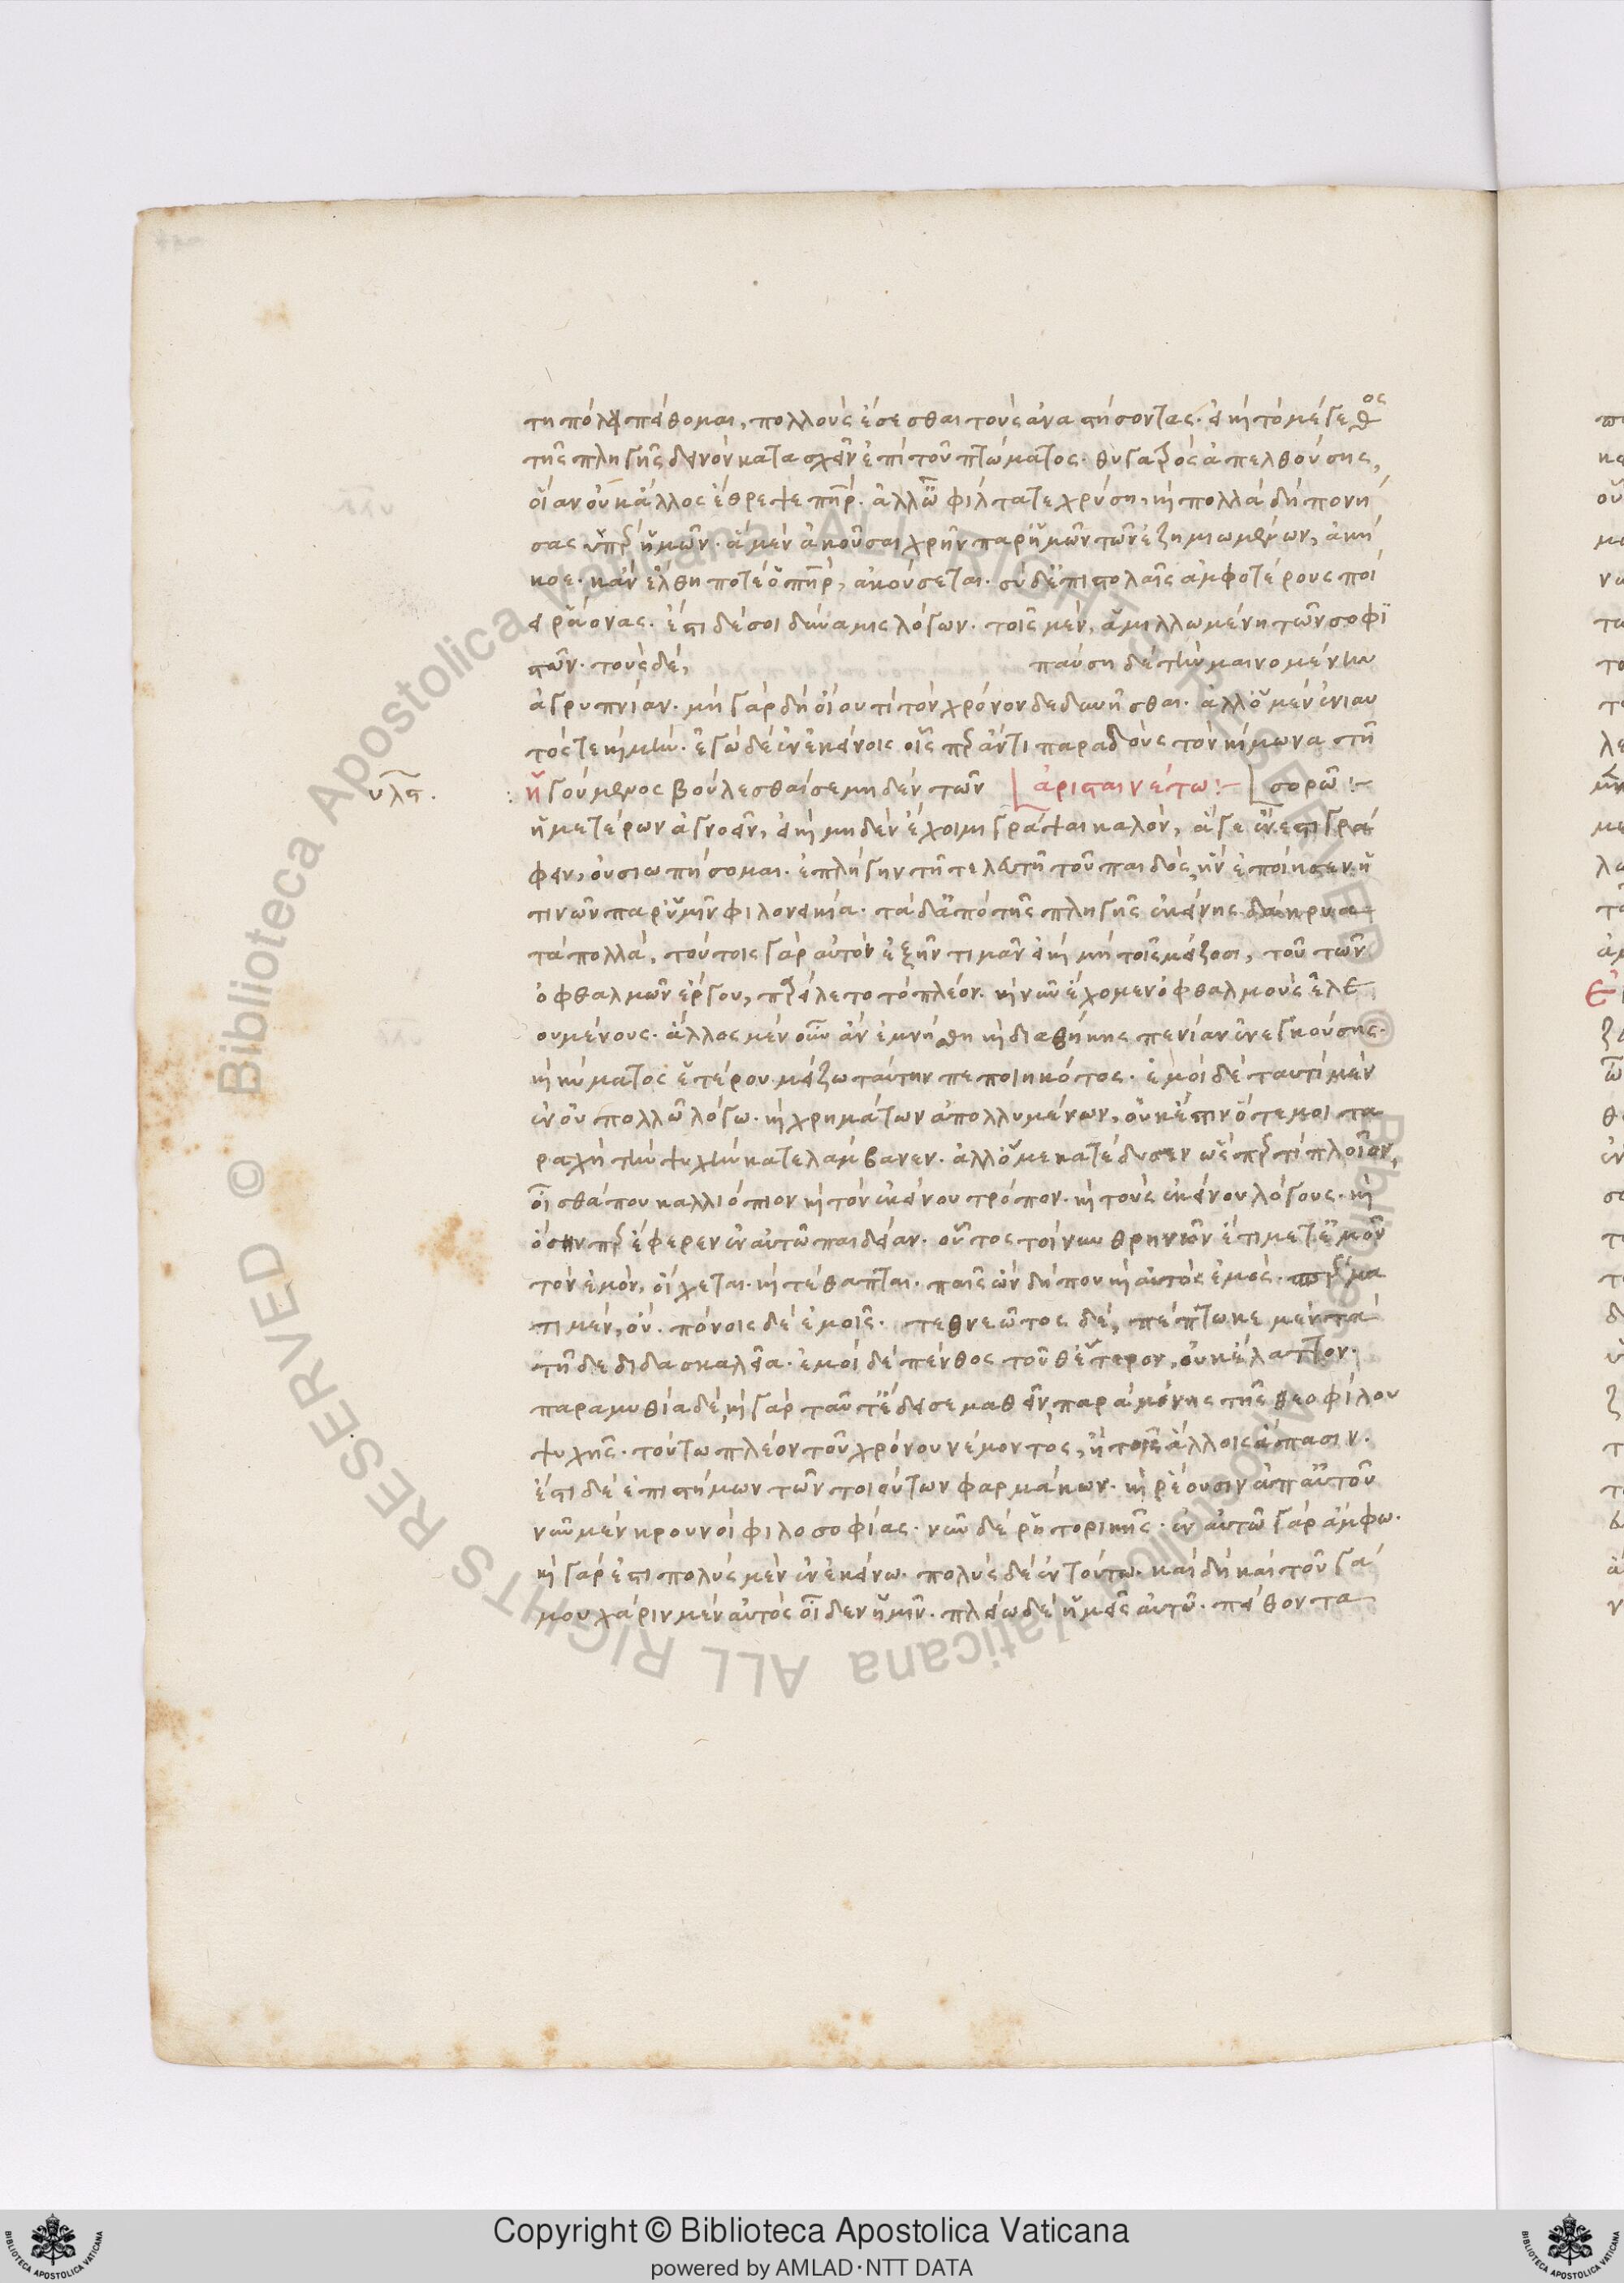 τη πόλει πείθομαι, πολλοὺς ἔσεσθαι τοὺς ἀναστήσοντας. εἰ καὶ τὸ μέγεθος
τῆς πληγῆς δεινὸν κατασχεῖν ἐπὶ τοῦ πτώματος. θυγατρὸς ἀπελθούσης,
οἵαν οὐκ ἄλλος ἔθρεψε πηρ. ἀλλ' ὦ φίλτατε χρύση, καὶ πολλὰ δὴ πονή
σας ὑπὲρ ἡμῶν. ἃ μὲν ἀκοῦσαι χρῆν παρ' ἡμῶν τῶν ἐζημιωμένων, ἀκή
κοε. κἂν ἔλθη ποτὲ ὁ πηρ, ἀκούσεται. σὺ δ' ἐπιστολαῖς ἀμφοτέρους ποί
ει ῥάονας. ἔστι δέ σοι δύναμις λόγων. τοῖς μὲν, ἁμιλλωμένη τῶν σοφι
στῶν. τοὺς δὲ, παύση δὲ τὴν μαινομένην
ἀγρυπνίαν. μὴ γὰρ δὴ οἴου τί τὸν χρόνον δεδυνῆσθαι. ἀλλ' ὁ μὲν ἐνιαυ
τός τε καὶ μὴν. ἐγὼ δὲ ἐν ἐκείνοις οἷς πράντι παραδοὺς τὸν κίμωνα στῆ
υλϛ.
ἡγούμενος βούλεσθαί σε μηδὲν τῶν ἀρισταινέτω :- σορῶ :-
ἡμετέρων ἀγνοεῖν, εἰ καὶ μηδὲν ἔχοιμι γράψαι καλὸν, ἅ γε ἔνεστι γρά
φειν, οὐ σιωπήσομαι. ἐπλήγην τῆ τελευτῆ τοῦ παιδὸς, ἣν ἐποίησεν ἡ
τινῶν παρ' ὑμῖν φιλονεικία. τὰ δ' ἀπὸ τῆς πληγῆς ἐκείνης δάκρυα
τὰ πολλὰ, τούτοις γὰρ αὐτὸν ἐξῆν τιμᾶν εἰ καὶ μὴ τοῖς μείζοσι, τοῦ τῶν
ὀφθαλμῶν ἔργου, πρείλετο τὸ πλέον. καὶ νῦν ἔχομεν ὀφθαλμοὺς ἐλε
ουμένους. ἄλλος μὲν οὖν ἂν ἐμνήσθη καὶ διαθήκης πενίαν ἐνεγκούσης.
καὶ κύματος ἑτέρου μείζω ταύτην πεποιηκότος. ἐμοὶ δὲ ταυτὶ μὲν
ἐν οὐ πολλῶ λόγω. καὶ χρημάτων ἀπολλυμένων, οὐκ ἔστιν ὅτε μοι τα
ραχὴ τὴν ψυχὴν κατελάμβανεν. ἀλλ' ὅ με κατέδυσεν ὥσπερ τι πλοῖον,
οἶσθά που καλλιόπιον καὶ τὸν ἐκείνου τρόπον. καὶ τοὺς ἐκείνου λόγους. καὶ
ὅσην πρέφερεν ἐν αὐτῶ παιδείαν. οὗτος τοίνυν θρηνῶν ἔτι μετ' ἐμοῦ
τὸν ἐμὸν, οἴχεται. καὶ τέθαπται. παῖς ὢν δήπου καὶ αὐτὸς ἐμὸς.
τι μὲν, οὔ. πόνοις δὲ ἐμοῖς. τεθνεῶτος δὲ, πέπτωκε μὲν τὰ
τῆδε διδασκαλεῖα. ἐμοὶ δὲ πένθος τοῦθ' ἕτερον, οὐκ ἔλαττον.
παραμυθία δὲ, καὶ γὰρ ταῦτ' ἔδει σε μαθεῖν, παρὰ μόνης τῆς θεοφίλου
ψυχῆς. τούτω πλέον τοῦ χρόνου νέμοντος, ἢ τοῖς ἄλλοις ἅπασιν.
ἔστι δὲ ἐπιστήμων τῶν τοιούτων φαρμάκων. καὶ ῥέουσιν ἀπ' αὐτοῦ
νῦν μὲν κρουνοὶ φιλοσοφίας. νῦν δὲ ῥητορικῆς. ἐν αὐτῶ γὰρ ἄμφω.
καὶ γάρ ἐστι πολὺς μὲν ἐν ἐκείνω. πολὺς δὲ ἐν τούτω. καὶ δὴ καὶ τοῦ γά
μου χάριν μὲν αὐτὸς οἶδεν ἡμῖν. πλείω δὲ ἡμᾶς αὐτῶ. πείθοντα
Copyright © Biblioteca Apostolica Vaticana
powered by AMLAD·NTT DATA